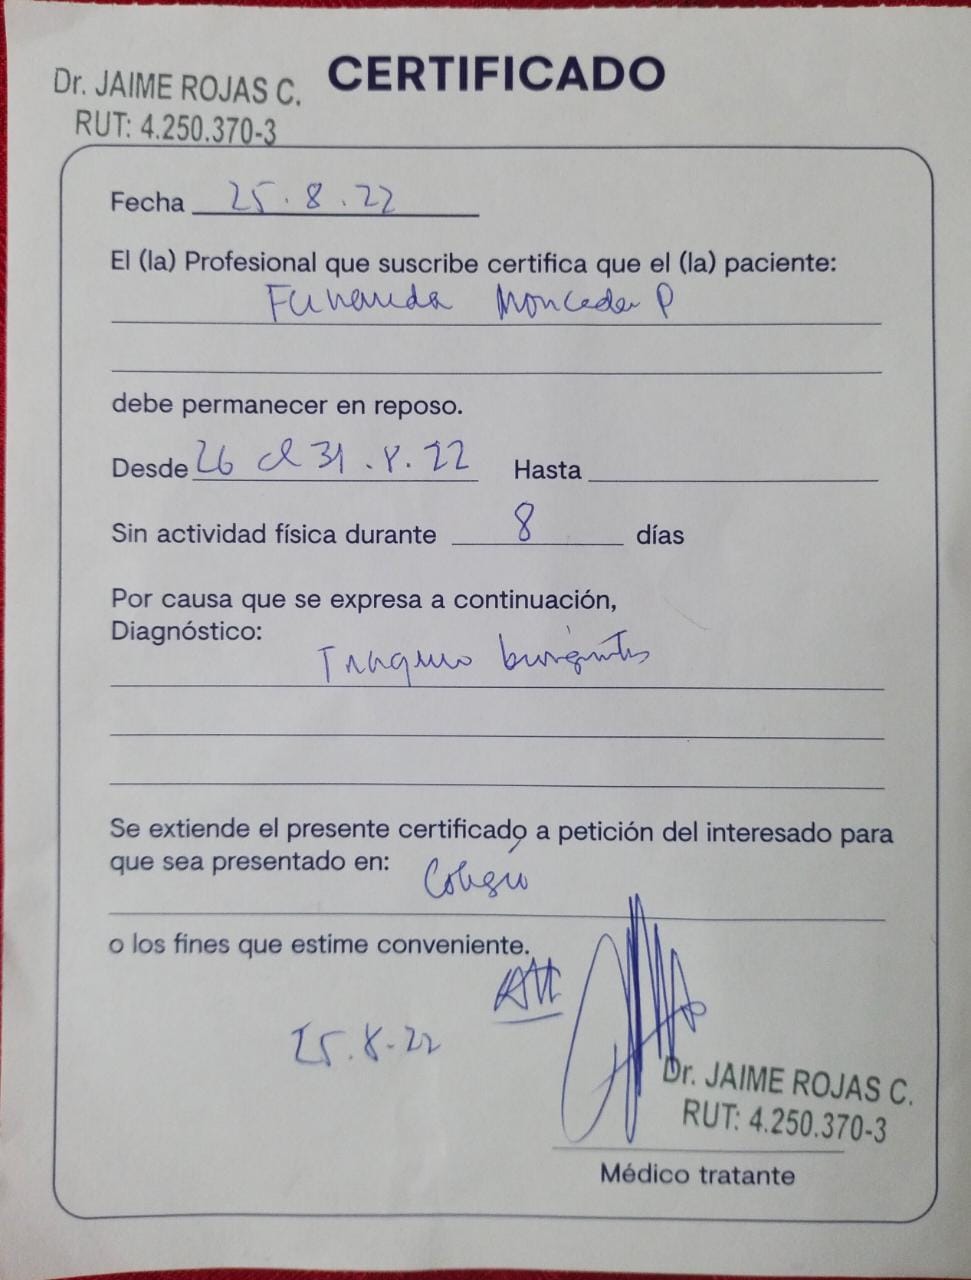 CERTIFICADO
Dr. JAIME ROJAS C.
RUT: 4.250.370-3
Fecha 25.8.22
El (la) Profesional que suscribe certifica que el (la) paciente:
Fernanda Moncada P
debe permanecer en reposo.
Desde 26 al 31.8.22 Hasta
Sin actividad física durante 8 días
Por causa que se expresa a continuación,
Diagnóstico:
Se extiende el presente certificado a petición del interesado para
que sea presentado en: Colegio
o los fines que estime conveniente.
Att
25.8.22
Dr. JAIME ROJAS C.
RUT: 4.250.370-3
Médico tratante